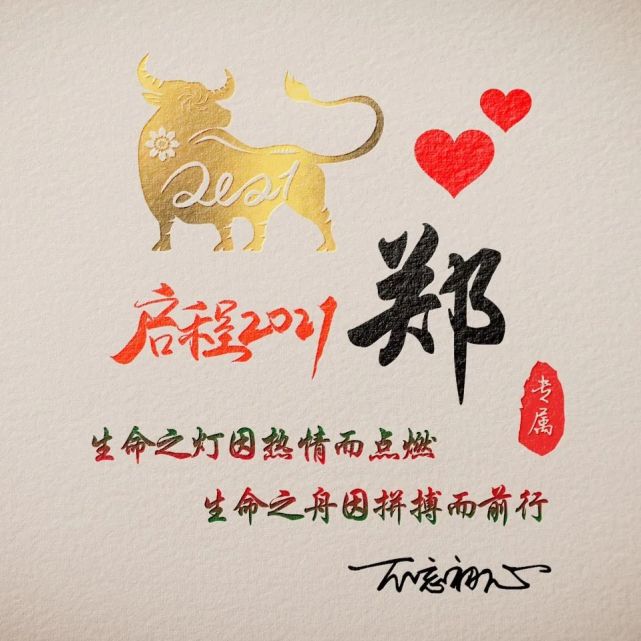 2021
启程2021
郑
专属
生命之灯因热情而点燃
生命之舟因拼搏而前行
不忘初心